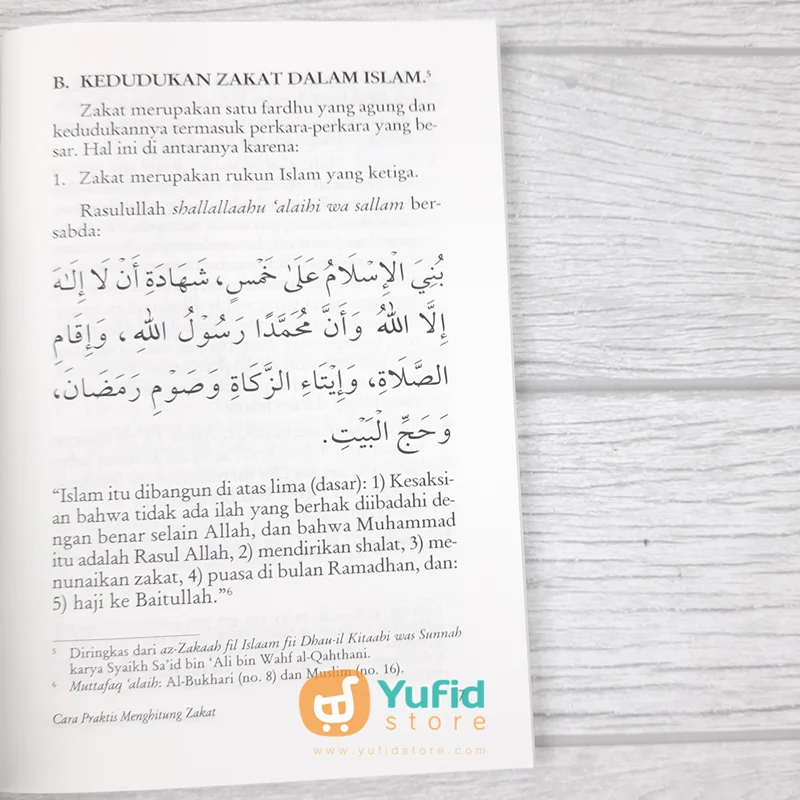 B. KEDUDUKAN ZAKAT DALAM ISLAM.⁵
Zakat merupakan satu fardhu yang agung dan
kedudukannya termasuk perkara-perkara yang be-
sar. Hal ini di antaranya karena:
1. Zakat merupakan rukun Islam yang ketiga.
Rasulullah shallallaahu ‘alaihi wa sallam ber-
sabda:
بُنِيَ الْإِسْلَامُ عَلَىٰ خَمْسٍ، شَهَادَةِ أَنْ لَا إِلَـٰهَ
إِلَّا اللهُ وَأَنَّ مُحَمَّدًا رَسُوْلُ اللهِ، وَإِقَامِ
الصَّلَاةِ، وَإِيْتَاءِ الزَّكَاةِ وَصَوْمِ رَمَضَانَ،
وَحَجِّ الْبَيْتِ.
“Islam itu dibangun di atas lima (dasar): 1) Kesaksi-
an bahwa tidak ada ilah yang berhak diibadahi de-
ngan benar selain Allah, dan bahwa Muhammad
itu adalah Rasul Allah, 2) mendirikan shalat, 3) me-
nunaikan zakat, 4) puasa di bulan Ramadhan, dan:
5) haji ke Baitullah.”⁶
⁵ Diringkas dari az-Zakaah fil Islaam fii Dhau-il Kitaabi was Sunnah
karya Syaikh Sa’id bin ‘Ali bin Wahf al-Qahthani.
⁶ Muttafaq ‘alaih: Al-Bukhari (no. 8) dan Muslim (no. 16).
Cara Praktis Menghitung Zakat
Yufid
store
www.yufidstore.com